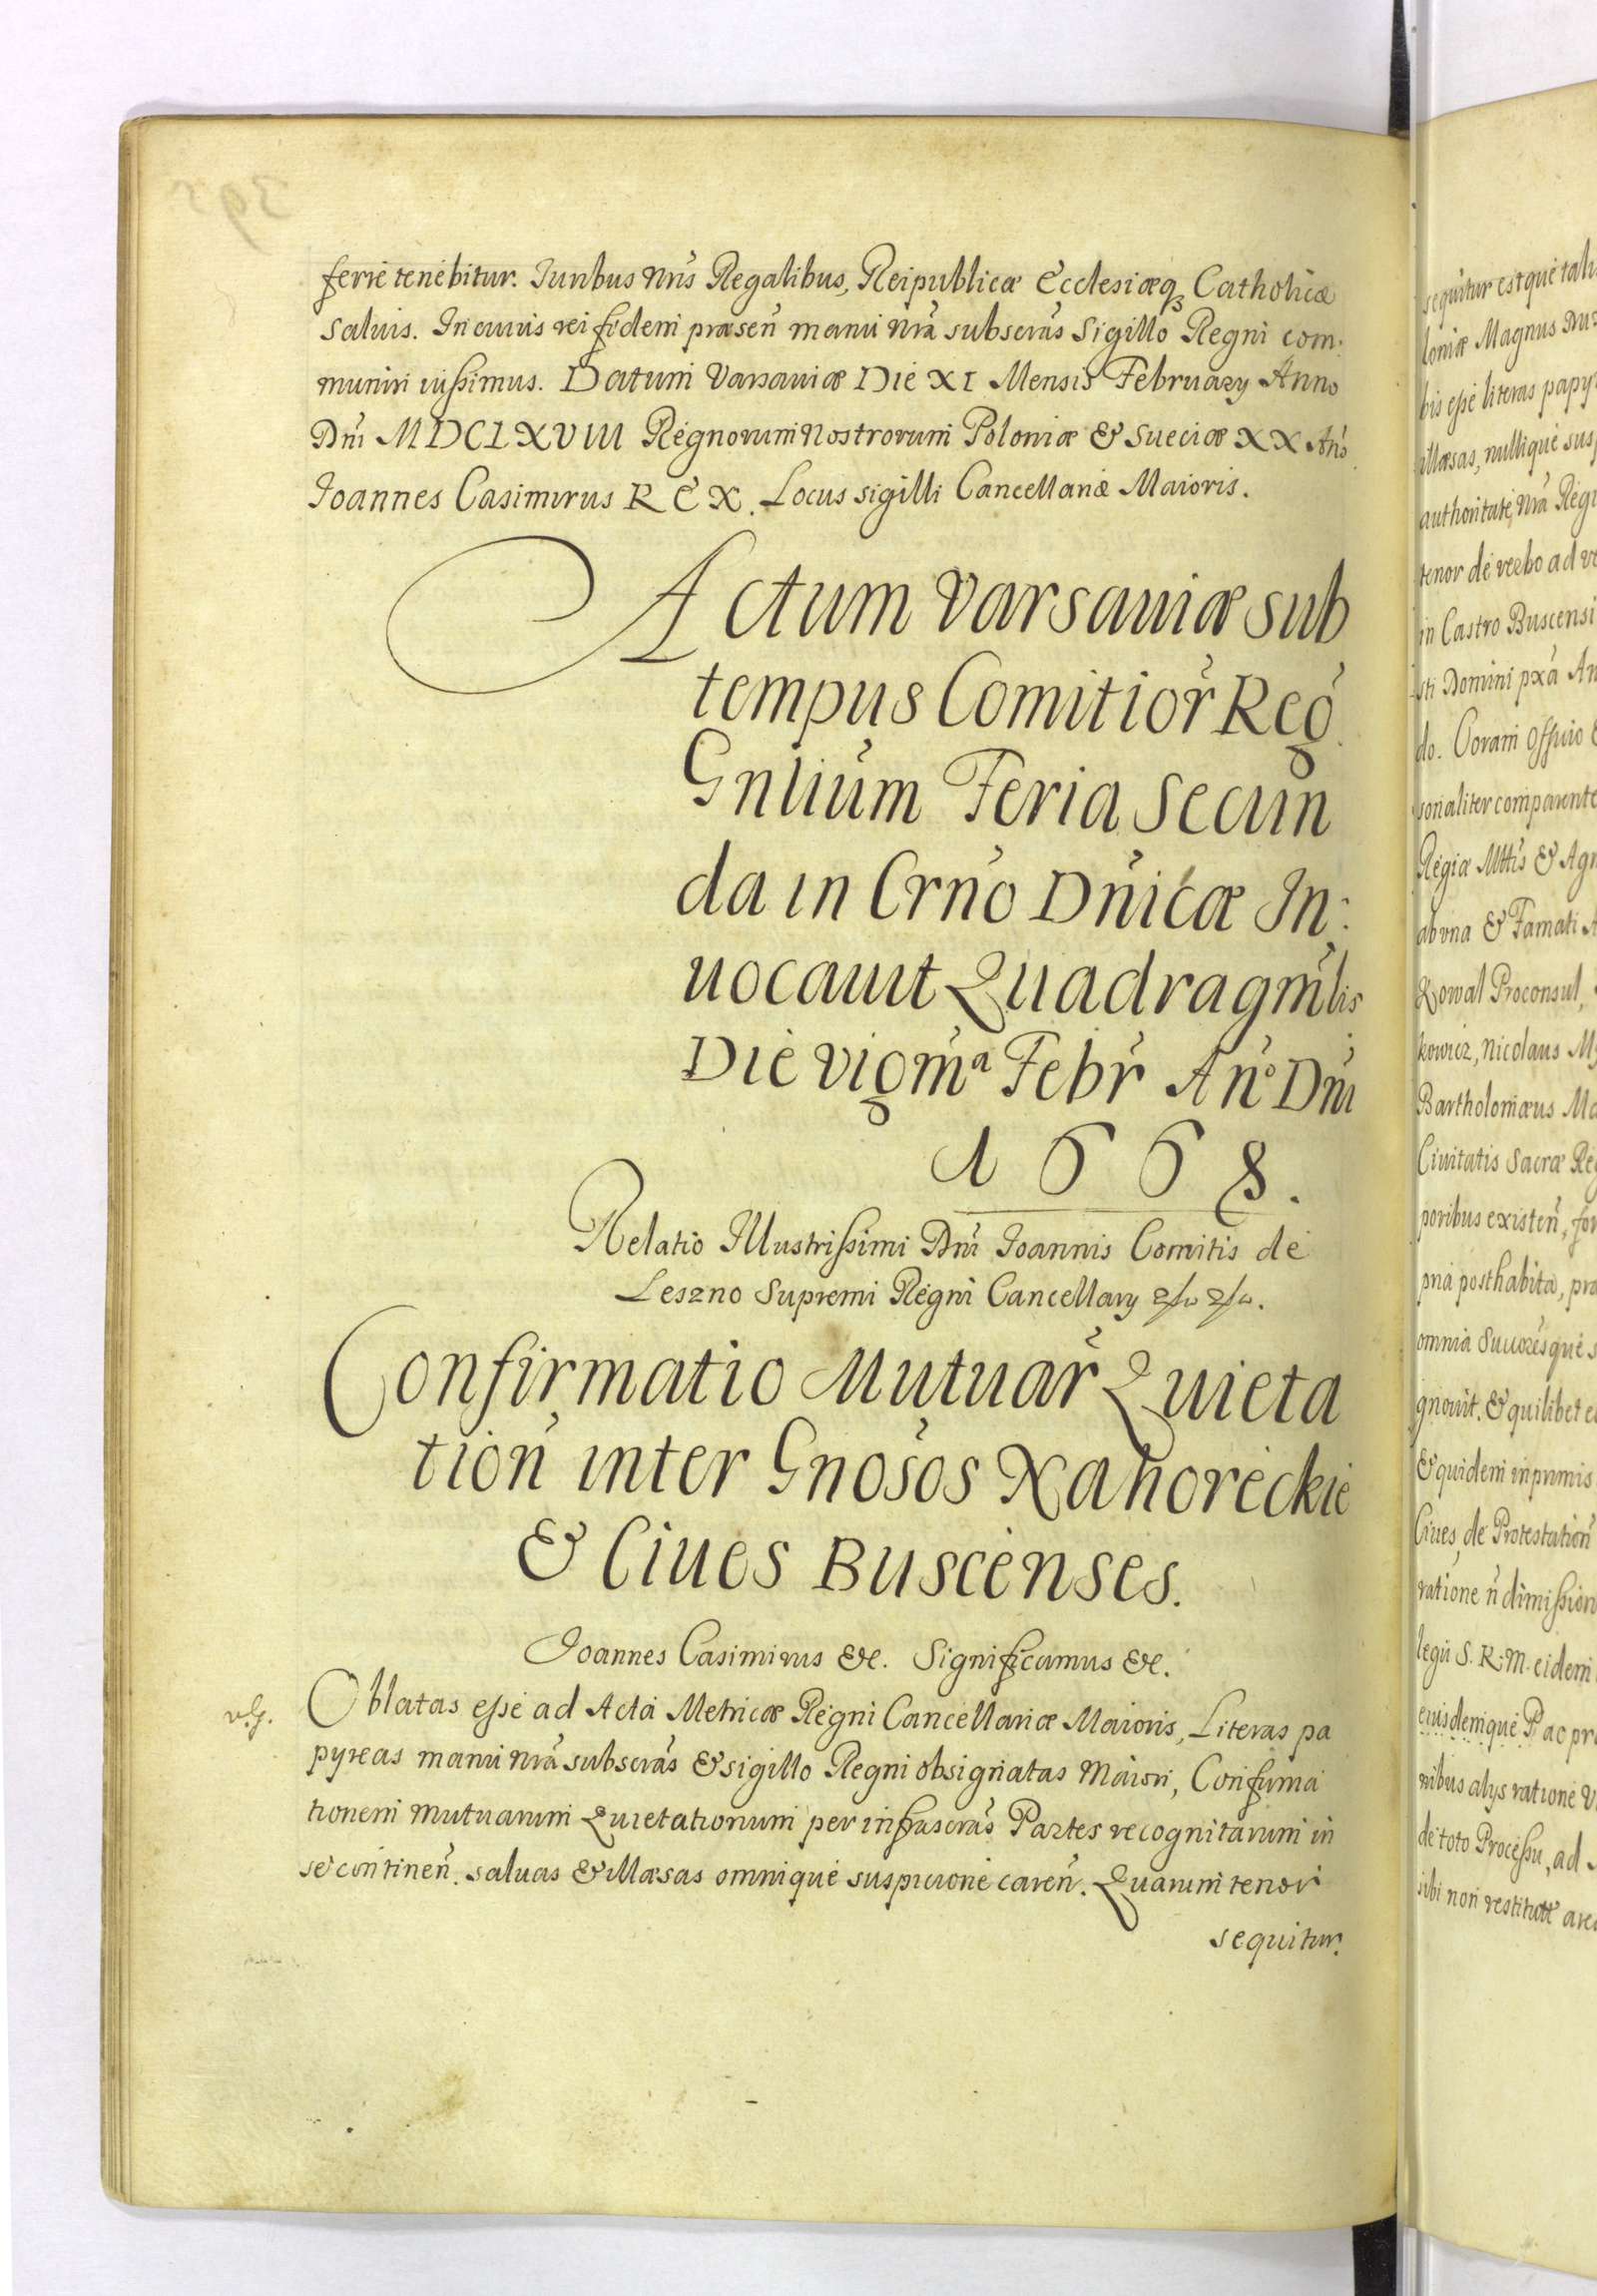 ferre tenebitur. Iuribus Nris Regalibus, Reipublicæ Ecclesiæq3 Catholicæ
saluis. In cuius rei fidem præsen̄ manu nr̄a subscrās Sigillo Regni com.
muniri iussimus. Datum Varsauiæ Die XI Mensis February Anno
Dn̄i MDCLXVIII Regnorum Nostrorum Poloniæ & Sueciæ XX An̄o
Ioannes Casimirus REX. Locus sigilli Cancellariæ Maioris.
Actum Varsauiæ sub
tempus Comitior̄ Reg̃
Gnlium̄ Feria Secun
da in Crn̄o Dn̄icæ In:
uocauit Quadragm̄lis
Die vigm̄a Febr̄ An̄o Dn̄i
1668.
Relatio Illustrissimi Dn̄i Ioannis Comitis de
Leszno Supremi Regni Cancellary
Confirmatio Mutuar̄ Quieta
tion̄ inter Gnōsos Zahoreckie
& Ciues Buscenses.
Ioannes Casimirus &c. Significamus &c.
Oblatas esse ad Acta Metricæ Regni Cancellariæ Maioris, Literas pa
pyreas manu nr̄a subscrās & sigillo Regni obsignatas Maiori, Confirma
tionem mutuarum Quietationum per infrascrās Partes recognitarum in
se continen̄. saluas & illæsas omnique suspicione caren̄. Quarum tenor
sequitur.
sequitur estque talis
loniæ Magnus Dux
bis esse literas papyr
illæsas, nullique sus
authoritate nr̄a Regi
tenor de verbo ad ve
in Castro Buscensi
sti Domini pxā An
do. Coram Officio &
sonaliter comparente
Regiæ Mttis & Agn
ab vna & Famati A
Kowal Proconsul,
kowicz, Nicolaus My
Bartholomæus Ma
Ciuitatis Sacræ Reg
poribus existen̄, for
pria posthabita, pro
omnia Succoresque s
gnouit. & quilibet e
& quidem inprimis
Ciues, de Protestation̄
ratione n̄ dimission
legii S. R. M. eidem
eiusdemque P ac pr
nibus alys ratione V
de toto Processu, ad
sibi non restitutæ are